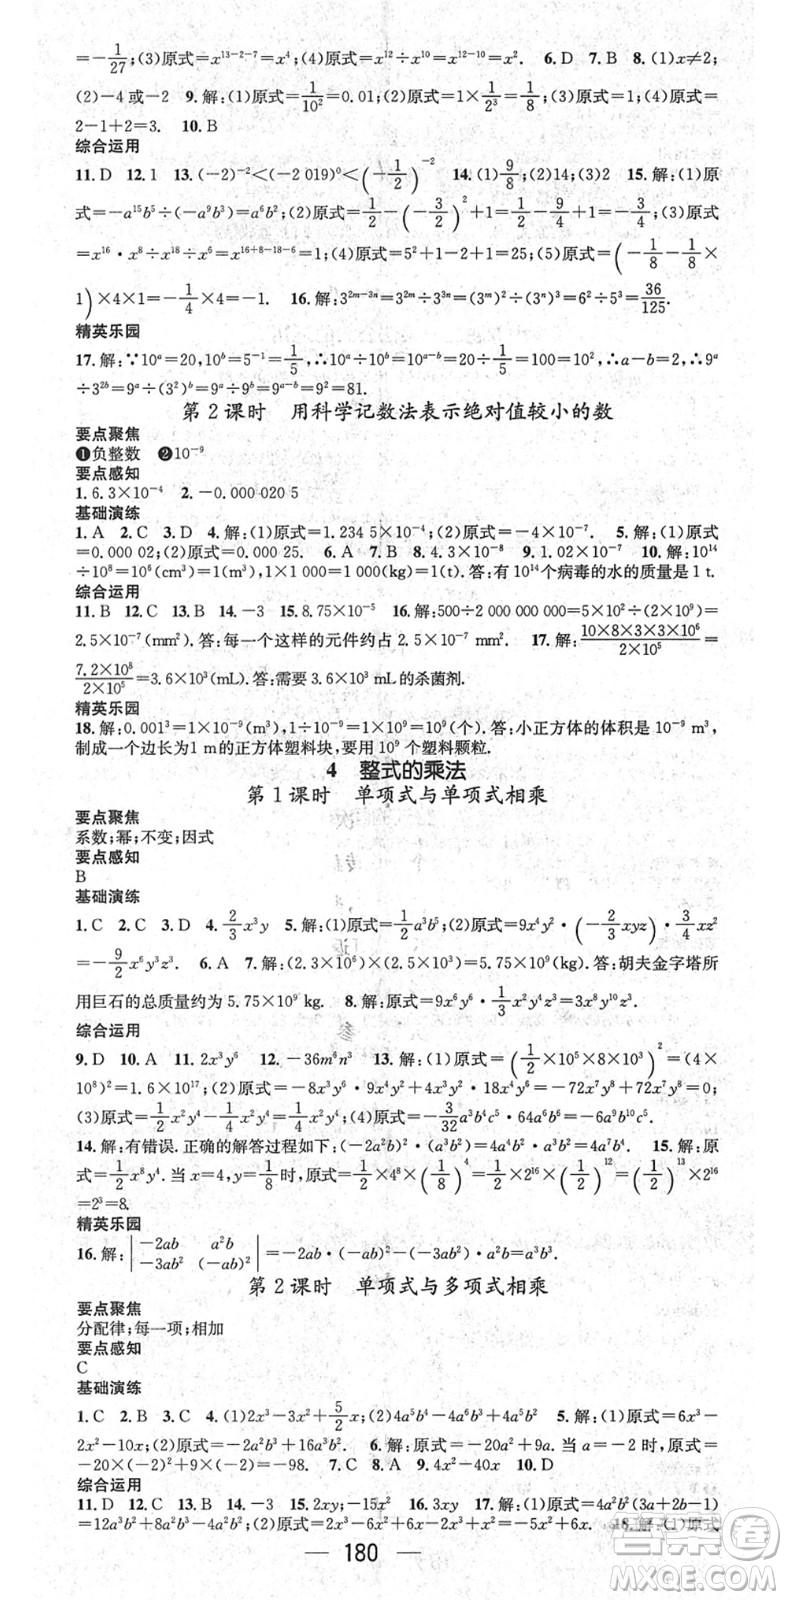 =-1/27;(3)原式=x¹³⁻²⁻⁷=x⁴;(4)原式=x¹²÷x¹⁰=x¹²⁻¹⁰=x². 6. D 7. B 8. (1)x≠2;
(2)-4或-2 9. 解:(1)原式=1/10²=0.01;(2)原式=1×1/2³=1/8;(3)原式=1;(4)原式=
2-1+2=3. 10. B
综合运用
11. D 12. 1 13. (-2)⁻²<(-2 019)⁰<(-1/2)⁻² 14. (1)9/8;(2)14;(3)2 15. 解:(1)原
式=-a¹⁵b⁵÷(-a⁹b³)=a⁶b²;(2)原式=1/2-(-3/2)²+1=1/2-9/4+1=-3/4;(3)原式
=x¹⁶·x⁸÷x¹⁸÷x⁶=x¹⁶⁺⁸⁻¹⁸⁻⁶=1;(4)原式=5²+1-2+1=25;(5)原式=(-1/8-1/8×
1)×4×1=-1/4×4=-1. 16. 解:3²ᵐ⁻³ⁿ=3²ᵐ÷3³ⁿ=(3ᵐ)²÷(3ⁿ)³=6²÷5³=36/125.
精英乐园
17. 解:∵10ᵃ=20,10ᵇ=5⁻¹=1/5,∴10ᵃ÷10ᵇ=10ᵃ⁻ᵇ=20÷1/5=10²,∴a-b=2,∴9ᵃ
÷3²ᵇ=9ᵃ÷9ᵇ=9ᵃ⁻ᵇ=9²=81.
第2课时 用科学记数法表示绝对值较小的数
要点聚焦
❶负整数 ❷10⁻⁹
要点感知
1. 6.3×10⁻⁴ 2. -0.000 020 5
基础演练
1. A 2. C 3. D 4. 解:(1)原式=1.234 5×10⁻⁴;(2)原式=-4×10⁻⁷. 5. 解:(1)原式
=0.000 02;(2)原式=0.000 25. 6. A 7. B 8. 4.3×10⁻⁸ 9. 1.22×10⁻⁶ 10. 解:10¹⁴
÷10⁸=10⁶(cm³)=1(m³),1×1 000=1 000(kg)=1(t). 答:有10¹⁴个病毒的水的质量是1 t.
综合运用
11. B 12. C 13. B 14. -3 15. 8.75×10⁻⁵ 16. 解:500÷2 000 000 000=5×10²÷(2×10⁹)=
2.5×10⁻⁷(mm²). 答:每一个这样的元件约占2.5×10⁻⁷ mm². 17. 解:10×8×3×3×10⁶/2×10⁵=
7.2×10⁸/2×10⁵=3.6×10³(mL). 答:需要3.6×10³ mL的杀菌剂.
精英乐园
18. 解:0.001³=1×10⁻⁹(m³),1÷10⁻⁹=10⁹(个). 答:小正方体的体积是10⁻⁹ m³,
制成一个边长为1 m的正方体塑料块,要用10⁹个塑料颗粒.
4 整式的乘法
第1课时 单项式与单项式相乘
要点聚焦
系数;幂;不变;因式
要点感知
B
基础演练
1. C 2. C 3. D 4. 2/3x³y 5. 解:(1)原式=1/2a³b⁵;(2)原式=9x⁴y²·(-2/3xyz)·3/4xz²
=-9/2x⁶y³z³. 6. A 7. 解:(2.3×10⁶)×(2.5×10³)=5.75×10⁹(kg). 答:胡夫金字塔所
用巨石的总质量约为5.75×10⁹ kg. 8. 解:原式=9x⁶y⁶·1/4x²y²z²=9/4x⁸y⁸z².
综合运用
9. D 10. A 11. 2x³y⁶ 12. -36m⁶n³ 13. 解:(1)原式=(1/2×10⁵×8×10³)²=(4×
10⁸)²=1.6×10¹⁷;(2)原式=-8x³y⁶·9x⁴y²+4x⁶y⁷·18xy=-72x⁷y⁸+72x⁷y⁸=0;
(3)原式=1/2x²y⁴-1/4x²y⁴=1/4x²y⁴;(4)原式=-3/32a³b⁴c·64a⁶b⁶=-6a⁹b¹⁰c.
14. 解:有错误. 正确的解答过程如下:(-2a²b²)²·(a³b³)=4a⁴b⁴·a³b³=4a⁷b⁷. 15. 解:原
式=1/2x⁸y⁴. 当x=4,y=1/8时,原式=1/2×4⁸×(1/8)⁴=1/2×2¹⁶×(1/2)¹²=(1/2)¹³×2¹⁶
=2³=8.
精英乐园
16. 解:|-2ab a²b -3ab² (-ab)²|=-2ab·(-ab)²-(-3ab²)·a²b=a³b³.
第2课时 单项式与多项式相乘
要点聚焦
分配律;每一项;相加
要点感知
C
基础演练
1. C 2. B 3. C 4. (1)2x³-3x²+5/2x;(2)4a⁵b⁴-4a⁴b³-4a²b² 5. 解:(1)原式=6x³-
2x²-10x;(2)原式=-2a³b³+16a⁴b². 6. 解:原式=-20a²+9a. 当a=-2时,原式=
-20×(-2)²+9×(-2)=-98. 7. C 8. A 9. 4x²-40x 10. D
综合运用
11. D 12. C 13. B 14. -3 15. 2xy;-15x² 16. 3xy 17. 解:(1)原式=4a²b²(3a+2b-1)
=12a³b²+8a²b³-4a²b²;(2)原式=2x³-6x²+6x-2x³+x²=-5x²+6x. 18. 解:(1)原式
180
答案圈
MXQE.COM